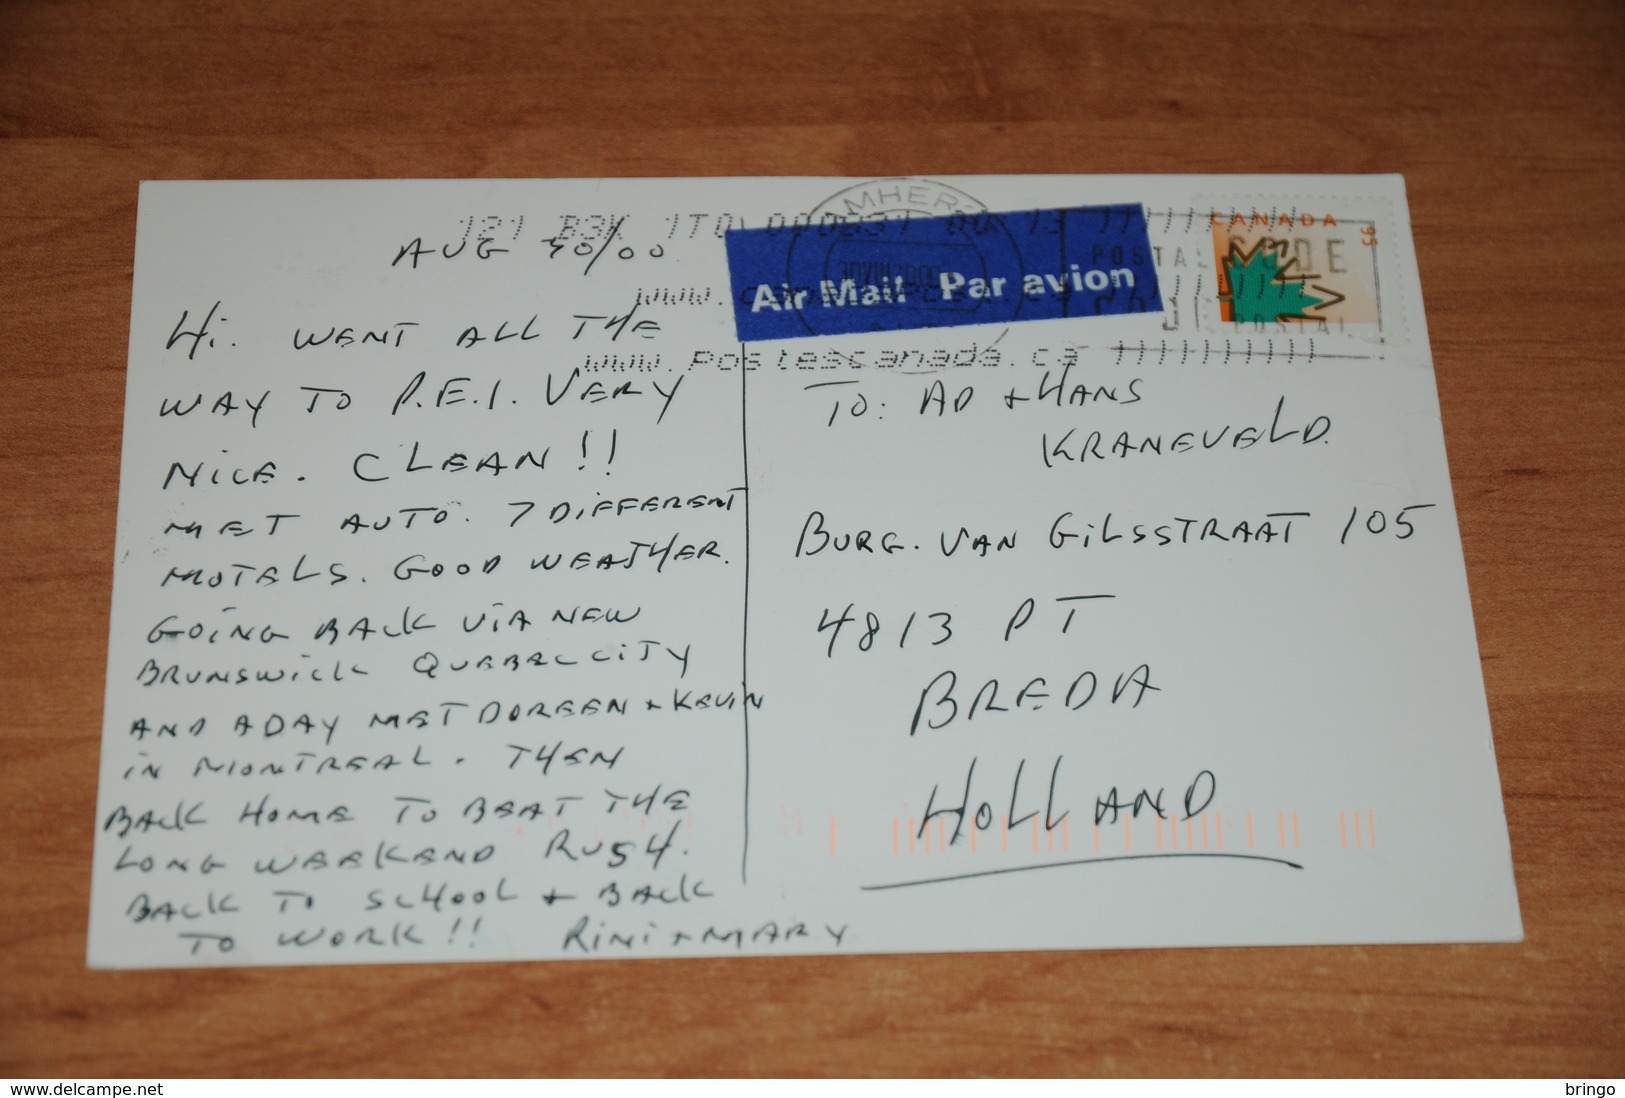 121 B3K 1T0
AUG 30/00
Hi. WENT ALL THE
WAY TO P.E.I. VERY
NICE. CLEAN!!
MET AUTO. 7 DIFFERENT
MOTELS. GOOD WEATHER.
GOING BACK VIA NEW
BRUNSWICK QUEBEC CITY
AND A DAY MET DOREEN + KEVIN
IN MONTREAL. THEN
BACK HOME TO BEAT THE
LONG WEEKEND RUSH.
BACK TO SCHOOL + BACK
TO WORK!! RINI + MARY
Air Mail Par avion
www.postescanada.ca
CANADA
55
POSTAL CODE
POSTAL
TO: AD + HANS
KRANEVELD.
BURG. VAN GILSSTRAAT 105
4813 PT
BREDA
HOLLAND
www.delcampe.net
bringo